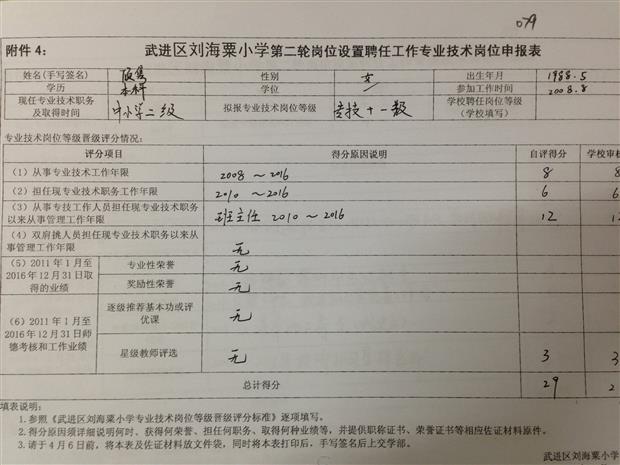 079
附件 4：
武进区刘海粟小学第二轮岗位设置聘任工作专业技术岗位申报表
姓名(手写签名) 性别 女 出生年月 1988.5
学历 本科 学位 参加工作时间 2008.8
现任专业技术职务及取得时间 中小学二级 拟报专业技术岗位等级 专技十一级 学校聘任岗位等级(学校填写)
专业技术岗位等级晋级评分情况：
评分项目 得分原因说明 自评得分 学校审
（1）从事专业技术工作年限 2008 ～ 2016 8 8
（2）担任现专业技术职务工作年限 2010 ～ 2016 6 6
（3）从事专技工作人员担任现专业技术职务以来从事管理工作年限 班主任 2010 ～ 2016 12 12
（4）双肩挑人员担任现专业技术职务以来从事管理工作年限 无
（5）2011 年 1 月至 2016 年 12 月 31 日取得的业绩 专业性荣誉 无
奖励性荣誉 无
（6）2011 年 1 月至 2016 年 12 月 31 日师德考核和工作业绩 逐级推荐基本功或评优课 无
星级教师评选 无 3 3
总计得分 29 2
填表说明：
1.参照《武进区刘海粟小学专业技术岗位等级晋级评分标准》逐项填写。
2.得分原因须详细说明何时、获得何荣誉、担任何职务、取得何种业绩等，并提供职称证书、荣誉证书等相应佐证材料原件。
3.请于 4 月 6 日前，将本表及佐证材料放文件袋，同时将本表打印后，手写签名后上交学部。
武进区刘海粟小学